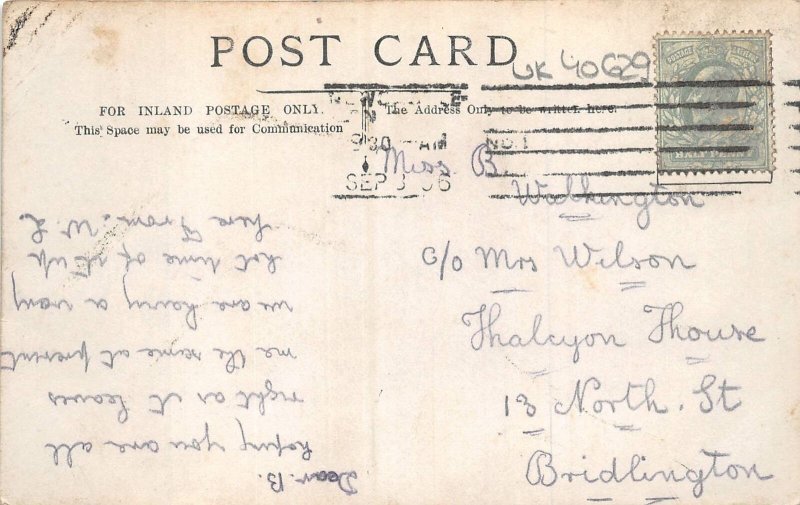 POST CARD
UK 40629
FOR INLAND POSTAGE ONLY.
This Space may be used for Communication
The Address Only to be written here.
POSTAGE REVENUE
HALF PENNY
9 30 AM NO.1
SEP 3 06
Miss B.
Walkington
c/o Mrs Wilson
Thalcyon Thouse
13 North. St
Bridlington
Dear. B.
hoping you are all
right as it leaves
me the same at present
we are having a very
hot time of it up
here From. W. L.